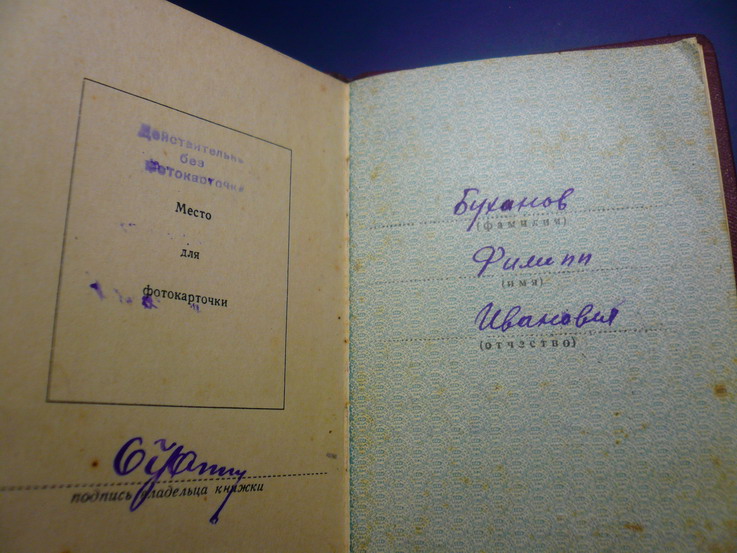 Действительна
без
фотокарточки
Место
для
фотокарточки
подпись владельца книжки
Буханов
(фамилия)
Филипп
(имя)
Иванович
(отчество)